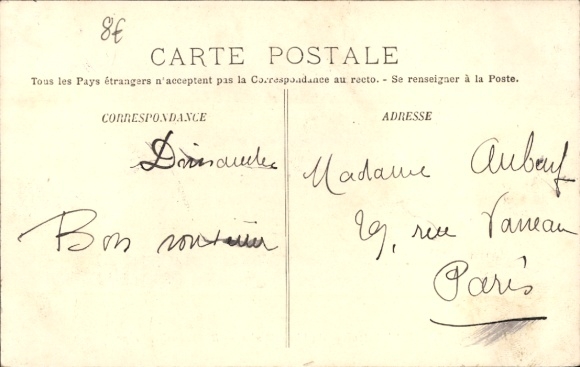 8€
CARTE POSTALE
Tous les Pays étrangers n'acceptent pas la Correspondance au recto. - Se renseigner à la Poste.
CORRESPONDANCE
Dimanche
Bons
ADRESSE
Madame
29, rue Vaneau
Paris